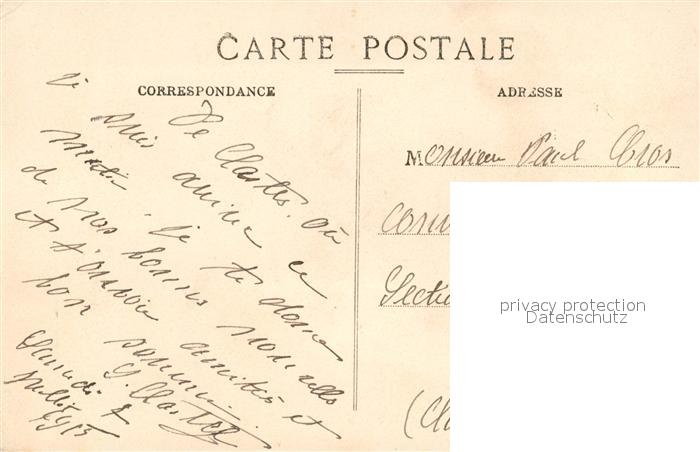 CARTE POSTALE
CORRESPONDANCE
ADRESSE
De Clastes, où
je suis arrivé ce
matin. Je te donne
de nos bonnes nouvelles
et t'envoie amitiés et
bon souvenir.
Samedi
Juillet
1915
Monsieur Paul Cros
Section
privacy protection
Datenschutz